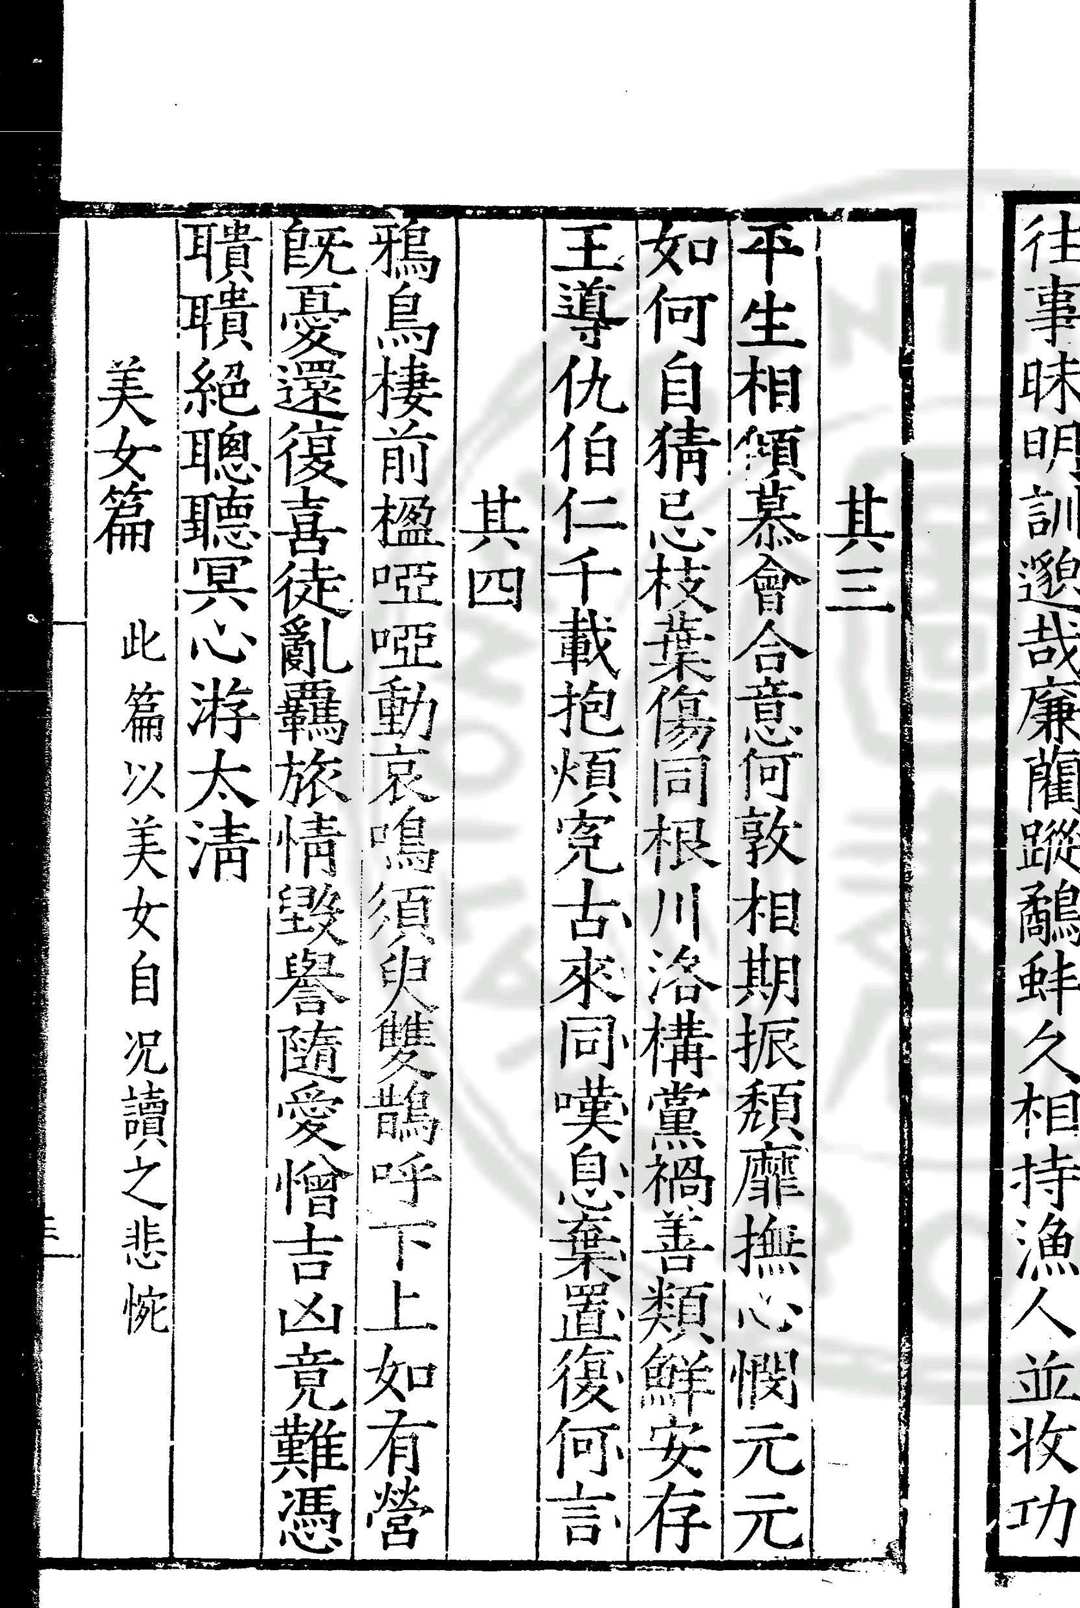 往事昧明訓邈哉廉藺蹤鷸蚌久相持漁人並收功
其三
平生相傾慕會合意何敦相期振頹靡撫心憫元元
如何自猜忌枝葉傷同根川洛構黨禍善類鮮安存
王導仇伯仁千載抱煩寃古來同嘆息棄置復何言
其四
鴉鳥棲前楹啞啞動哀鳴須臾雙鵲呼下上如有營
旣憂還復喜徒亂羈旅情毀譽隨愛憎吉凶竟難憑
聵聵絕聰聽冥心游太清
美女篇 此篇以美女自况讀之悲惋